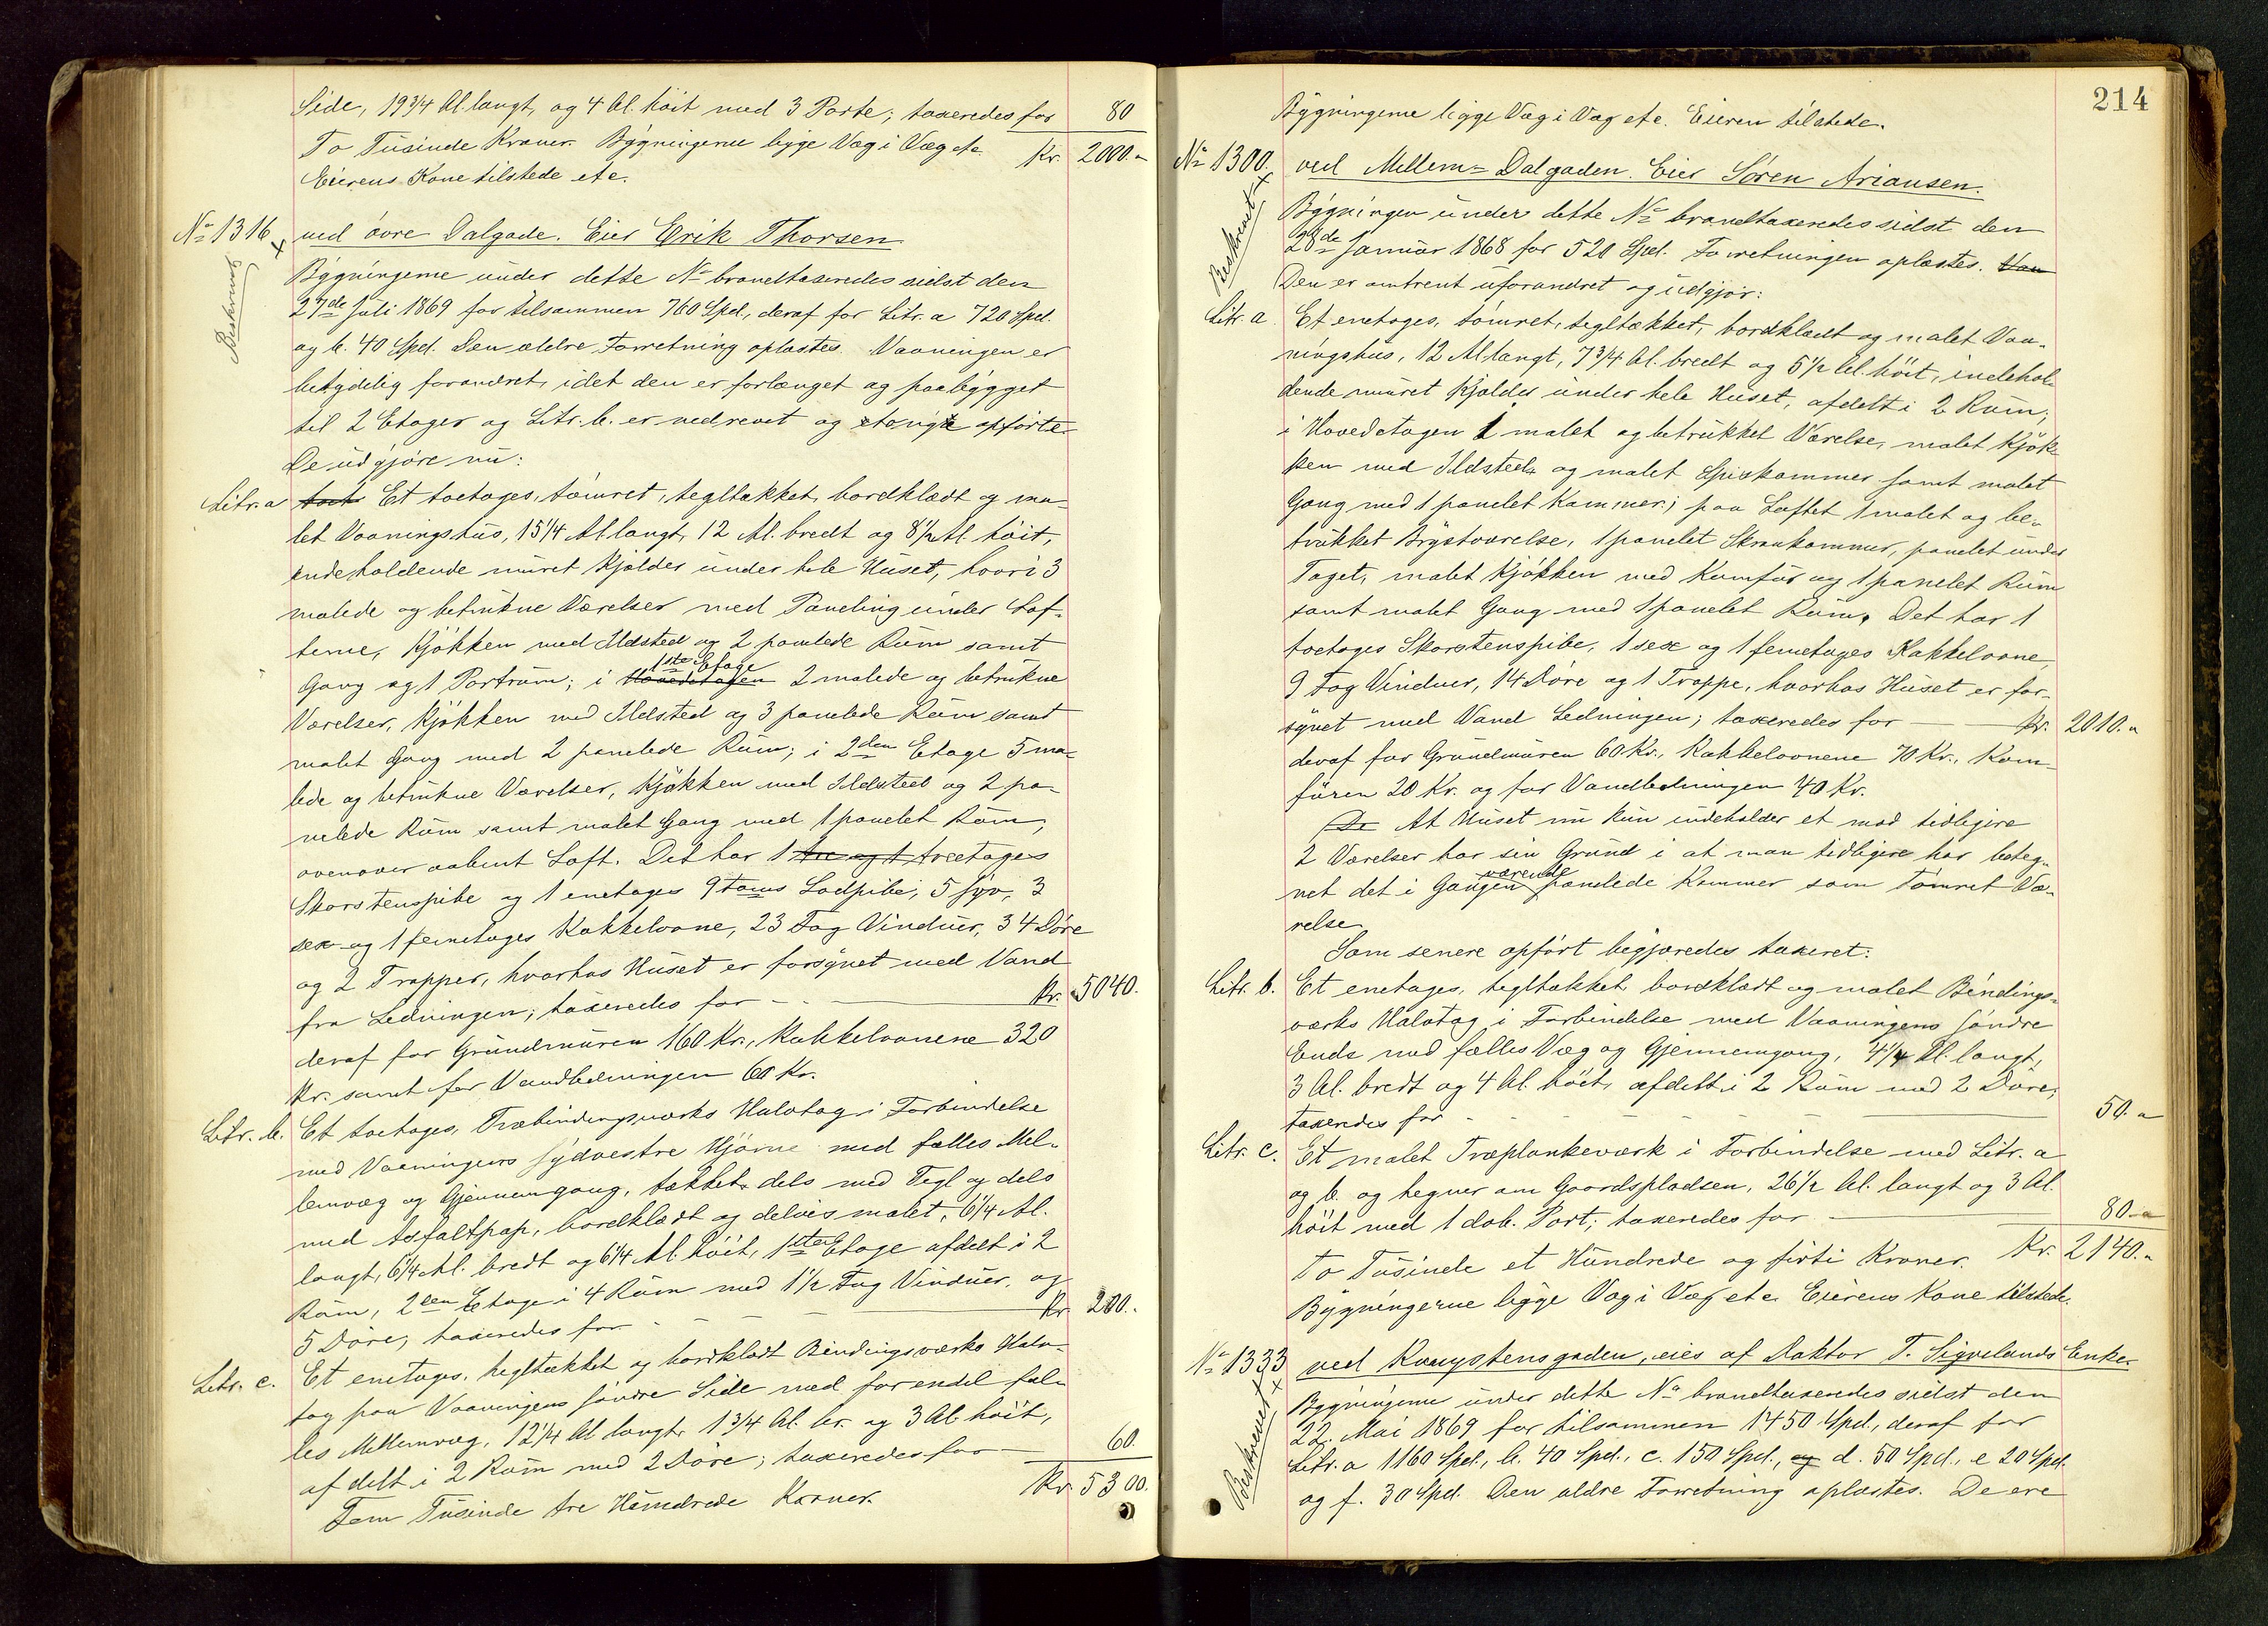 Side, 19 3/4 Al. langt, og 4 Al. höit med 3 Porte; taxeredes for 80
To Tusinde Kroner. Bygningerne ligge Væg i Væg etc. Kr. 2000.-
Eierens Kone tilstede etc.
No 1316 ved övre Dalgade. Eier Erik Thorsen
Beskrevet
Bygningerne under dette No brandtaxeredes sidst den
27de Juli 1869 for tilsammen 760 Spd., deraf for Litr. a 720 Spd.
og b. 40 Spd. Den ældre Forretning oplæstes. Vaaningen er
betydelig forandret, idet den er forlænget og paabygget
til 2 Etager og Litr. b. er nedrevet og opförte
De udgjöre nu:
Litr. a Et toetages, tömret, tegltækket, bordklædt og ma-
let Vaaningshus, 15 1/4 Al. langt, 12 Al. bredt og 8 1/2 Al. höit,
indeholdende muret Kjælder under hele Huset, hvori 3
malede og betrukne Værelser med Paneling under Lof-
terne, Kjökken med Ildsted og 2 panelede Rum samt
Gang og 1 Portrum; i Hovedetagen 1ste Etage 2 malede og betrukne
Værelser, Kjökken med Ildsted og 3 panelede Rum samt
malet Gang med 2 panelede Rum; i 2den Etage 5 ma-
lede og betrukne Værelser, Kjökken med Ildsted og 2 pa-
nelede Rum samt malet Gang med 1 panelet Rum,
ovenover aabent Loft. Det har 1 tre og 1 treetages
Skorstenspibe og 1 enetages 9 toms Lodpibe, 5 syv, 3
sex og 1 femetages Kakkelovne, 23 Fag Vinduer, 34 Döre
og 2 Trapper, hvorhos Huset er forsynet med Vand
fra Ledningen; taxeredes for - - Kr. 5040.
deraf for Grundmuren 160 Kr., Kakkelovnene 320
Kr. samt for Vandledningen 60 Kr.
Litr. b. Et toetages, Træbindingsværks Halvtag i Forbindelse
med Vaaningens sydvestre Hjörne med fælles Mel-
lemvæg og Gjennemgang, tækket dels med Tegl og dels
med Asfaltpap, bordklædt og delvis malet, 6 1/4 Al.
langt, 6 1/4 Al. bredt og 6 1/4 Al. höit, 1ste Etage afdelt i 2
Rum, 2den Etage i 4 Rum med 1 1/2 Fag Vinduer, og
5 Döre; taxeredes for - - Kr. 200.
Litr. c. Et enetages, tegltækket og bordklædt Bindingsværks Halv-
tag paa Vaaningens söndre Side med for endel fæl-
les Mellemvæg, 12 1/4 Al. langt, 1 3/4 Al. br. og 3 Al. höit,
afdelt i 2 Rum med 2 Döre; taxeredes for 60.
Fem Tusinde tre Hundrede Kroner. Kr. 5300.
214
Bygningerne ligge Væg i Væg etc. Eieren tilstede.
No 1300. ved Mellem-Dalgaden. Eier Sören Ariansen.
Beskrevet
Bygningen under dette No brandtaxeredes sidst den
28de Januar 1868 for 520 Spd. Forretningen oplæstes.
Den er omtrent uforandret og udgjör:
Litr. a. Et enetages, tömret, tegltækket, bordklædt og malet Vaa-
ningshus, 12 Al. langt, 7 3/4 Al. bredt og 5 1/2 Al. höit, indehol-
dende muret Kjælder under hele Huset, afdelt i 2 Rum;
i Hovedetagen 1 malet og betrukket Værelse, malet Kjök-
ken med Ildsted og malet Spiskammer samt malet
Gang med 1 panelet Kammer; paa Loftet 1 malet og be-
trukket Brystværelse, 1 panelet Skraakammer, panelet under
Taget, malet Kjökken med Komfur og 1 panelet Rum
samt malet Gang med 1 panelet Rum. Det har 1
toetages Skorstenspibe, 1 sex og 1 femetages Kakkelovne,
9 Fag Vinduer, 14 Döre og 1 Trappe, hvorhos Huset er for-
synet med Vand Ledningen; taxeredes for - Kr. 2010.-
deraf for Grundmuren 60 Kr., Kakkelovnene 70 Kr., Kom-
furen 20 Kr. og for Vandledningen 40 Kr.
De At Huset nu kun indeholder et mod tidligere
2 Værelser har sin Grund i at man tidligere har beteg-
net det i Gangen værende panelede Kammer som tömret Væ-
relse.
Som senere opfört begjæredes taxeret:
Litr. b. Et enetages, tegltækket, bordklædt og malet Bindings-
værks Halvtag i Forbindelse med Vaaningens söndre
Ende med fælles Væg og Gjennemgang, 4 1/4 Al. langt,
3 Al. bredt og 4 Al. höit, afdelt i 2 Rum med 2 Döre;
taxeredes for - - 50.-
Litr. c. Et malet Træplankeværk i Forbindelse med Litr. a
og b. og hegner om Gaardspladsen, 26 1/2 Al. langt og 3 Al.
höit med 1 dob. Port; taxeredes for - 80.-
To Tusinde et Hundrede og firti Kroner. Kr. 2140.-
Bygningerne ligge Væg i Væg etc. Eierens Kone tilstede.
No 1333 ved Kongstensgaden, eies af Doktor T. Sigvelands Enke.
Beskrevet
Bygningerne under dette No brandtaxeredes sidst den
22. Mai 1869 for tilsammen 1450 Spd., deraf for
Litr. a 1160 Spd., b. 40 Spd., c. 150 Spd., og d. 50 Spd., e 20 Spd.
og f. 30 Spd. Den ældre Forretning oplæstes. De ere